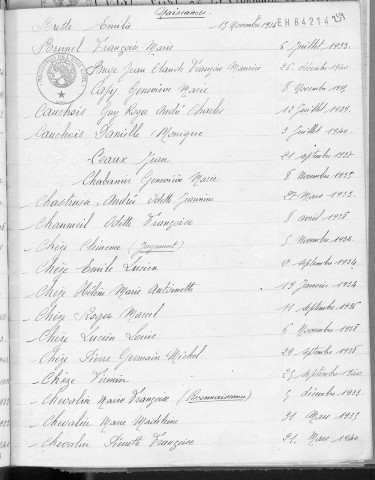 Naissances
Brette Emilie 15 Novembre 1924 EH64214
Brunet François Marie 5 Juillet 1933.
Jean Claude François Maurice 26 décembre 1940
Capy Geneviève Marie 8 Novembre
Cauchois Guy Roger André Charles 12 Juillet 1939.
Cauchois Danielle Monique 3 Juillet 1940.
Ceaux Jean 21 septembre 1937
Chabannes Geneviève Marie 8 Novembre 1935
André Odette Jeannine 27 Mars 1933.
Chaumeil Odette Françoise 8 avril 1938
Chèze Clémence (Jugement) 5 Novembre 1934
Chèze Emile Lucien 9 septembre 1934.
Chèze Hélène Marie Antoinette 19 Janvier 1934
Chèze Roger Marcel 11 septembre 1936
Chèze Lucien Louis 6 Novembre 1938
Chèze Pierre Germain Michel 29 septembre 1938
Chèze Firmin 25 septembre 1940
Chevalier Marie Françoise (Reconnaissance) 5 décembre 1933.
Chevalier Marie Madeleine 20 Mars 1935
Chevalier Pierrette Françoise 21 Mars 1940